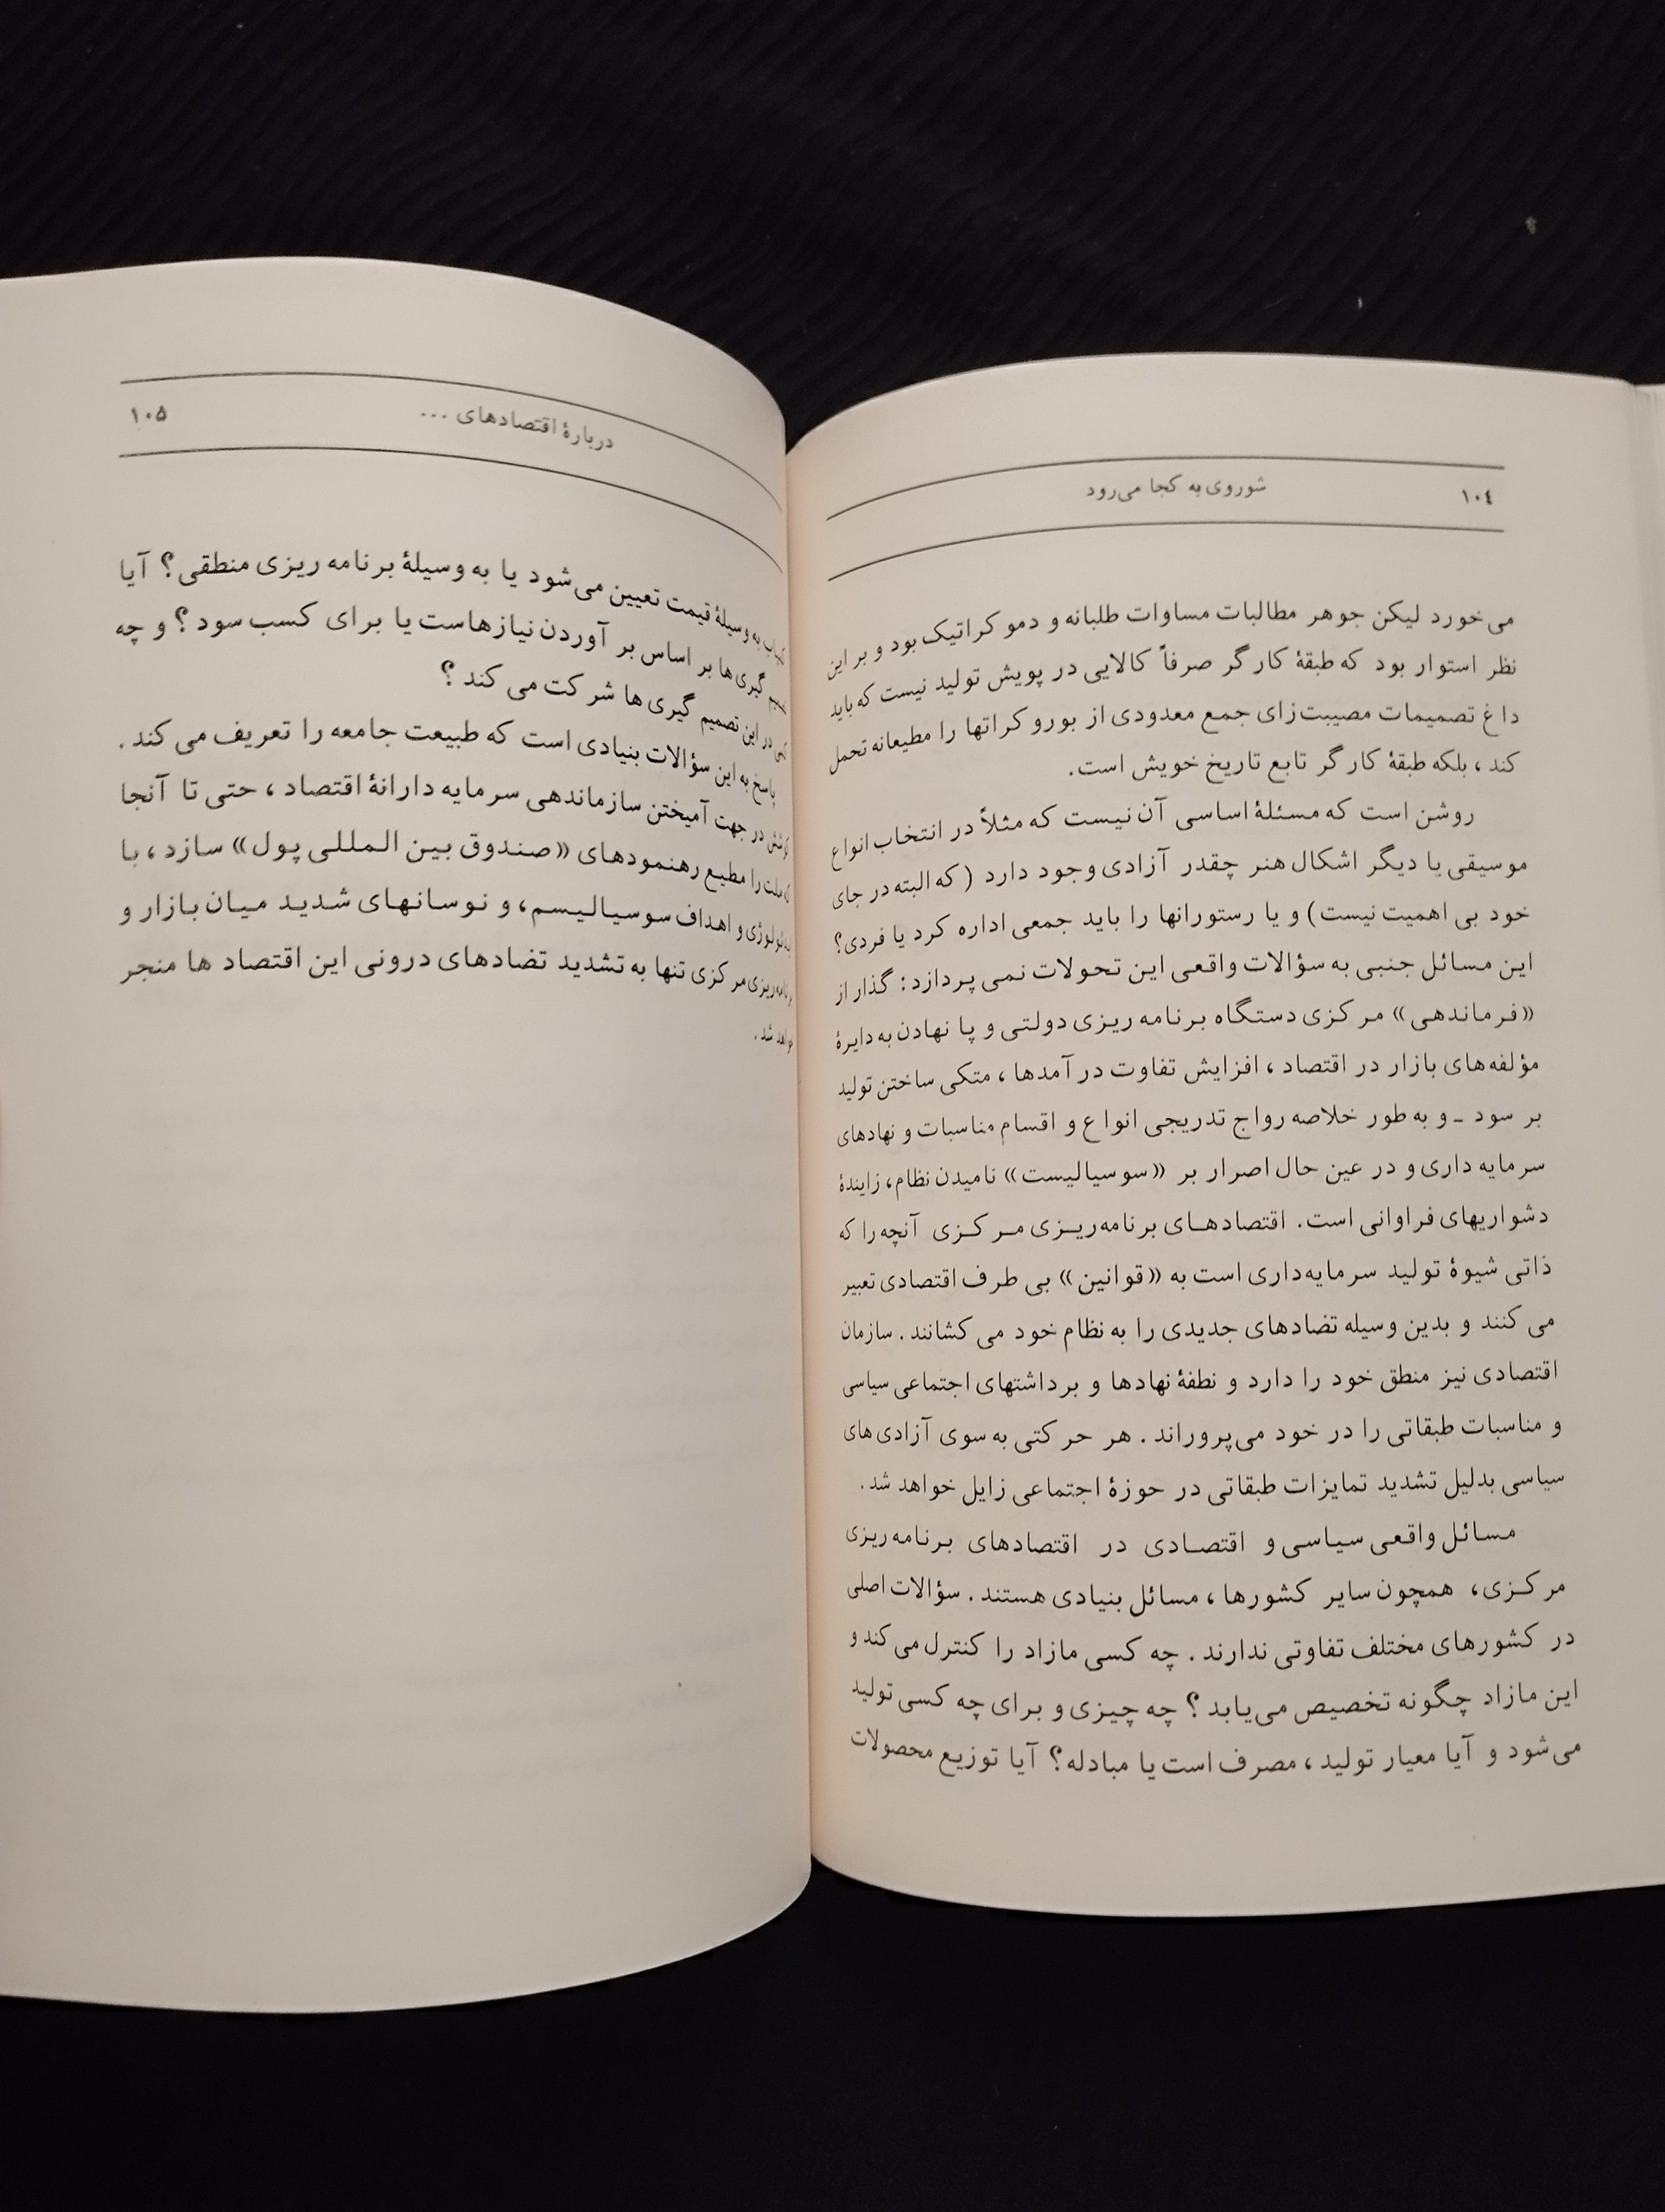 ۱۰۴
شوروی به کجا می‌رود
می‌خورد لیکن جوهر مطالبات مساوات طلبانه و دموکراتیک بود و بر این
نظر استوار بود که طبقهٔ کارگر صرفاً کالایی در پویش تولید نیست که باید
داغ تصمیمات مصیبت‌زای جمع معدودی از بوروکراتها را مطیعانه تحمل
کند، بلکه طبقهٔ کارگر تابع تاریخ خویش است.
روشن است که مسئلهٔ اساسی آن نیست که مثلاً در انتخاب انواع
موسیقی یا دیگر اشکال هنر چقدر آزادی وجود دارد (که البته در جای
خود بی اهمیت نیست) و یا رستورانها را باید جمعی اداره کرد یا فردی؟
این مسائل جنبی به سؤالات واقعی این تحولات نمی پردازد: گذار از
«فرماندهی» مرکزی دستگاه برنامه ریزی دولتی و پا نهادن به دایرهٔ
مؤلفه‌های بازار در اقتصاد، افزایش تفاوت درآمدها، متکی ساختن تولید
بر سود ـ و به طور خلاصه رواج تدریجی انواع و اقسام مناسبات و نهادهای
سرمایه داری و در عین حال اصرار بر «سوسیالیست» نامیدن نظام، زایندهٔ
دشواریهای فراوانی است. اقتصادهای برنامه‌ریزی مرکزی آنچه را که
ذاتی شیوهٔ تولید سرمایه‌داری است به «قوانین» بی طرف اقتصادی تعبیر
می کنند و بدین وسیله تضادهای جدیدی را به نظام خود می کشانند. سازمان
اقتصادی نیز منطق خود را دارد و نطفهٔ نهادها و برداشتهای اجتماعی سیاسی
و مناسبات طبقاتی را در خود می‌پروراند. هر حرکتی به سوی آزادی‌های
سیاسی بدلیل تشدید تمایزات طبقاتی در حوزهٔ اجتماعی زایل خواهد شد.
مسائل واقعی سیاسی و اقتصادی در اقتصادهای برنامه‌ریزی
مرکزی، همچون سایر کشورها، مسائل بنیادی هستند. سؤالات اصلی
در کشورهای مختلف تفاوتی ندارند. چه کسی مازاد را کنترل می‌کند و
این مازاد چگونه تخصیص می‌یابد؟ چه چیزی و برای چه کسی تولید
می‌شود و آیا معیار تولید، مصرف است یا مبادله؟ آیا توزیع محصولات
دربارهٔ اقتصادهای ...
۱۰۵
به وسیلهٔ قیمت تعیین می‌شود یا به وسیلهٔ برنامه ریزی منطقی؟ آیا
گیری‌ها بر اساس بر آوردن نیازهاست یا برای کسب سود؟ و چه
در این تصمیم گیری ها شرکت می کند؟
پاسخ به این سؤالات بنیادی است که طبیعت جامعه را تعریف می کند.
در جهت آمیختن سازماندهی سرمایه دارانهٔ اقتصاد، حتی تا آنجا
را مطیع رهنمودهای «صندوق بین المللی پول» سازد، با
و اهداف سوسیالیسم، و نوسانهای شدید میان بازار و
برنامه‌ریزی مرکزی تنها به تشدید تضادهای درونی این اقتصاد ها منجر
خواهد شد.